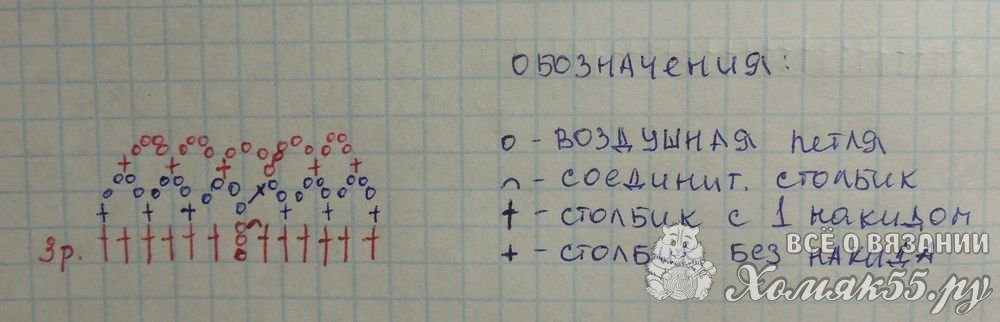 ОБОЗНАЧЕНИЯ:
о - ВОЗДУШНАЯ ПЕТЛЯ
⌒ - СОЕДИНИТ. СТОЛБИК
† - СТОЛБИК С 1 НАКИДОМ
+ - СТОЛБ БЕЗ НАКИДА
3р.
ВСЁ О ВЯЗАНИИ
Хомяк55.ру